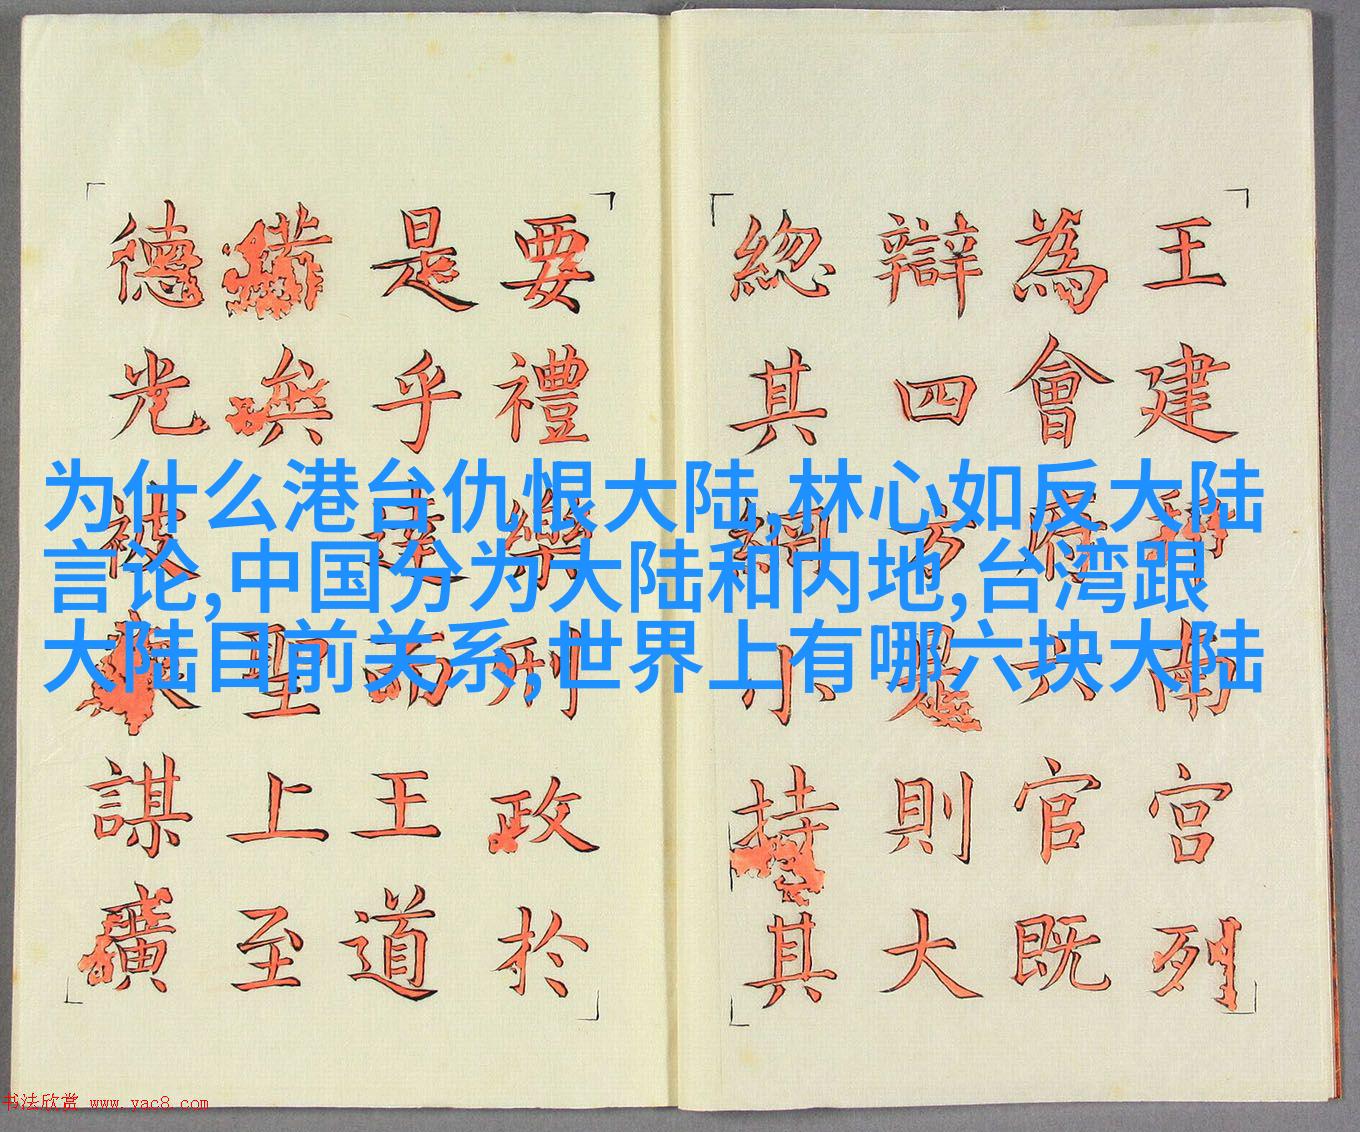 为什么港台仇恨大陆,林心如反大陆
言论,中国分为大陆和内地,台湾跟
大陆目前关系,世界上有哪六块大陆
王建南宫列
為會府六官既
辯四方是則大
緫其綱小持其
要禮樂刑政於
是乎達而王道
備矣聖上至
德光被謀廣
书法欣赏 www.yac8.com